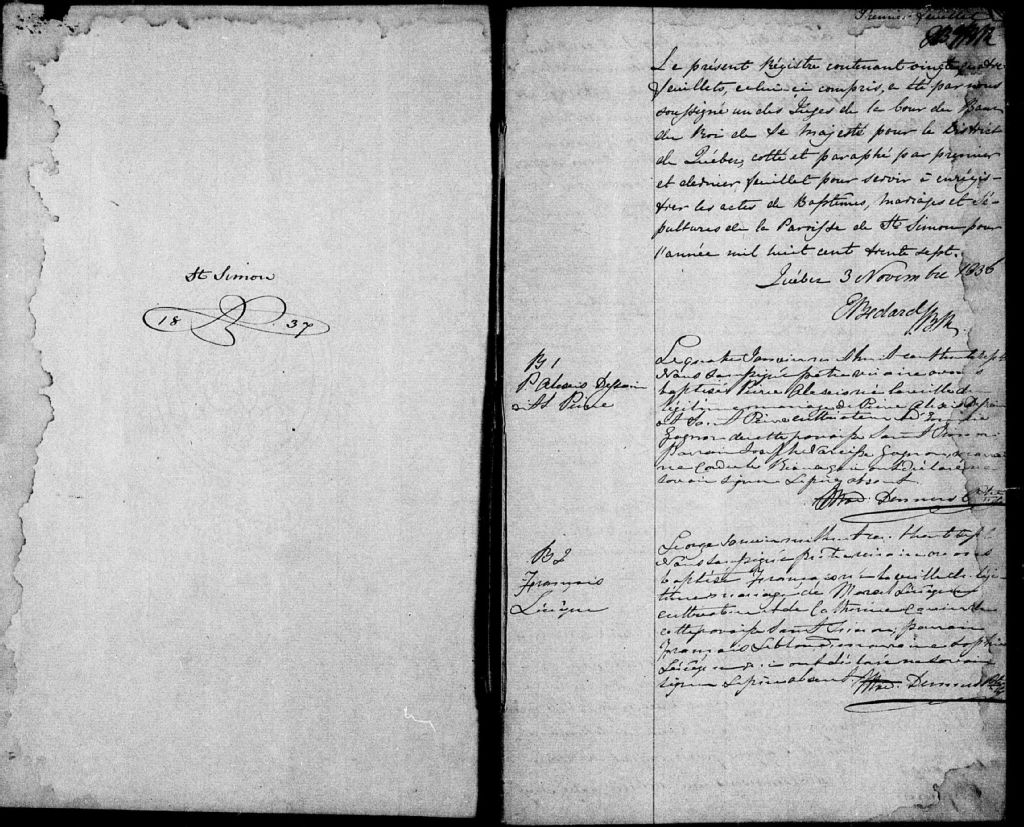 St Simon
18 37
Premier feuillet
Le présent Régistre contenant vingt quatre
feuillets, celui ci compris, a été par nous
soussigné un des Juges de la Cour du Banc
du Roi de Sa Majesté pour le District
de Québec, cotté et paraphé par premier
et dernier feuillet pour servir à enrégis-
trer les actes de Baptêmes, Mariages et Sé-
pultures de la Paroisse de St Simon pour
l'année mil huit cent trente sept.
Québec 3 Novembre 1836
E Bedard
B 1
P Alexis
St Pierre
Le quatre Janvier mil huit cent trente sept
Nous soussigné prêtre vicaire avons
baptisé Pierre Alexis né la veille du
légitime mariage de Pierre Alexis
St Pierre cultivateur et de
Gagnon de cette paroisse Saint Simon
Parrain Joseph Narcisse Gagnon,
ont déclaré ne
savoir signer le père absent.
B 2
François
Lévêque
Janvier mil huit cent trente sept
Nous soussigné prêtre vicaire avons
baptisé François né la veille du légi-
time mariage de Marcel Lévêque
cultivateur et de Catherine
cette paroisse Saint Simon, parrain
François Leblond, marraine Sophie
Lévêque ont déclaré ne savoir
signer le père absent.